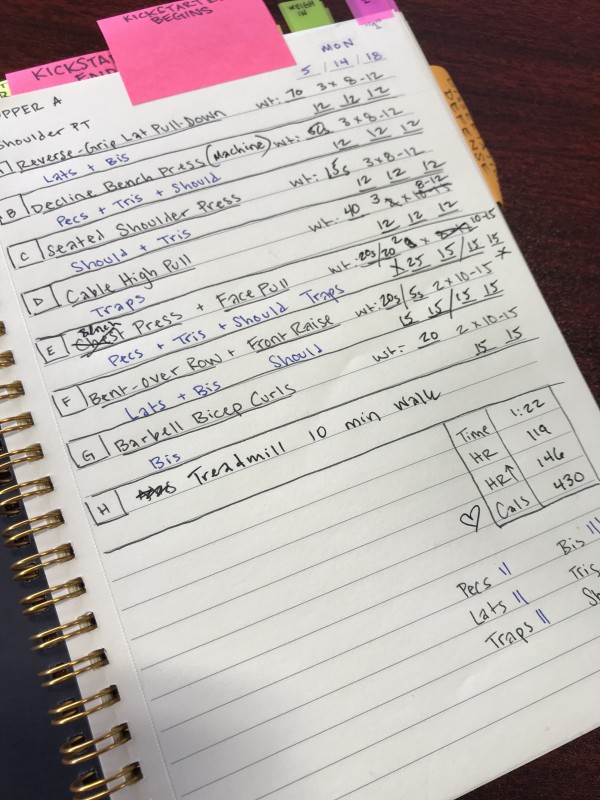 KICKSTART
BEGINS
WEIGH
IN
KICKSTA
MON
5/14/18
PPER A
Shoulder PT
Reverse-Grip Lat Pull-Down wt: 70 3 x 8-12
Lats + Bis 12 12 12
B Decline Bench Press (Machine) wt: 50 3 x 8-12
Pecs + Tris + Should 12 12 12
C Seated Shoulder Press wt: 15s 3 x 8-12
Should + Tris 12 12 12
D Cable High Pull wt: 40 3 x 8-12
Traps 12 12 12
E Bench Press + Face Pull wt: 20s/20 2 x 10-15
Pecs + Tris + Should Traps 25 15/15 15
F Bent-Over Row + Front Raise wt: 20s/5s 2 x 10-15
Lats + Bis Should 15 15/15 15
G Barbell Bicep Curls wt: 20 2 x 10-15
Bis 15 15
H Treadmill 10 min walk
Time 1:22
HR 119
HR↑ 146
♡ Cals 430
Pecs || Bis |||
Lats || Tris
Traps || Sh